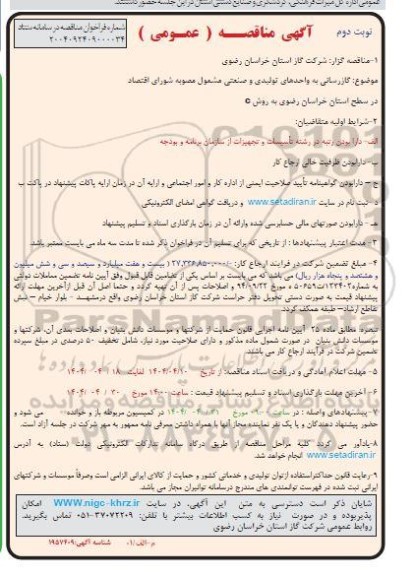 عمومی اداره کل میراث فرهنگی، گردشگری و صنایع دستی استان در این جلسه حضور داشتند.
نوبت دوم
آگهی مناقصه ( عمومی )
شماره فراخوان مناقصه در سامانه ستاد
۲۰۰۴۰۹۲۴۰۹۰۰۰۰۳۴
۱-مناقصه گزار: شرکت گاز استان خراسان رضوی
موضوع: گازرسانی به واحدهای تولیدی و صنعتی مشمول مصوبه شورای اقتصاد
در سطح استان خراسان رضوی به روش C
۲-شرایط اولیه متقاضیان:
الف- دارا بودن رتبه در رشته تأسیسات و تجهیزات از سازمان برنامه و بودجه
ب-دارابودن ظرفیت خالی ارجاع کار
ج – دارابودن گواهینامه تأیید صلاحیت ایمنی از اداره کار و امور اجتماعی و ارایه آن در زمان ارایه پاکات پیشنهاد در پاکت ب
د- ثبت نام در سایت www.setadiran.ir و دریافت گواهی امضای الکترونیکی
هـ- دارابودن صورتهای مالی حسابرسی شده وارائه آن در زمان بارگذاری اسناد و تسلیم پیشنهاد
۳- مدت اعتبار پیشنهادها : از تاریخی که برای تسلیم آن در فراخوان ذکر شده تا مدت سه ماه می بایست معتبر باشد
۴- مبلغ تضمین شرکت در فرایند ارجاع کار: ( بیست و هفت میلیارد و سیصد و سی و شش میلیون
و هشتصد و پنجاه هزار ریال) می باشد که می بایست بر اساس یکی از تضامین قابل قبول وفق آیین نامه تضمین معاملات دولتی
به شماره و اصلاحات پس از آن تهیه گردد و حتما اصل آن قبل ازآخرین مهلت ارائه
پیشنهاد قیمت به صورت دستی تحویل دفتر حراست شرکت گاز استان خراسان رضوی واقع درمشهد - بلوار خیام – نبش
تقاطع ارشاد– طبقه همکف گردد.
تبصره: مطابق ماده ۲۵ آیین نامه اجرایی قانون حمایت از شرکتها و موسسات دانش بنیان و اصلاحات بعدی آن، شرکتها و
موسسات دانش بنیان در صورت شمول ماده مذکور و دارای صلاحیت مورد نیاز، شامل تخفیف ۵۰ درصدی در مبلغ سپرده
تضمین شرکت در فرآیند ارجاع کار می باشند.
۵- مهلت اعلام آمادگی و دریافت اسناد مناقصه: از تاریخ لغایت
۶- آخرین مهلت بارگذاری اسناد و تسلیم پیشنهاد قیمت : ساعت: ۱۴:۰۰ مورخ
۷- پیشنهادهای واصله : در ساعت مورخ در کمیسیون مربوط باز و خوانده می شود و
حضور پیشنهاد دهندگان و یا یک نفر نماینده مجاز آنها با همراه داشتن معرفی نامه ممهور به مهر شرکت در جلسه آزاد است.
۸-یادآور می گردد کلیه مراحل مناقصه از طریق درگاه سامانه تدارکات الکترونیکی دولت (ستاد) به آدرس
www.setadiran.ir انجام خواهد شد.
۹-رعایت قانون حداکثراستفاده ازتوان تولیدی و خدماتی کشور و حمایت از کالای ایرانی الزامی است وصرفاً موسسات و شرکتهای
ایرانی ثبت شده در فهرست توانمندی های مندرج درسامانه توانیران مجاز می باشد.
شایان ذکر است دسترسی به متن این آگهی، در سایت WWW.nigc-khrz.ir امکان
پذیربوده و در صورت نیاز به کسب اطلاعات بیشتر با تلفن: ۳۷۰۷۲۲۰۹-۰۵۱ تماس بگیرید.
روابط عمومی شرکت گاز استان خراسان رضوی
شناسه آگهی: ۱۹۵۷۶۰۹